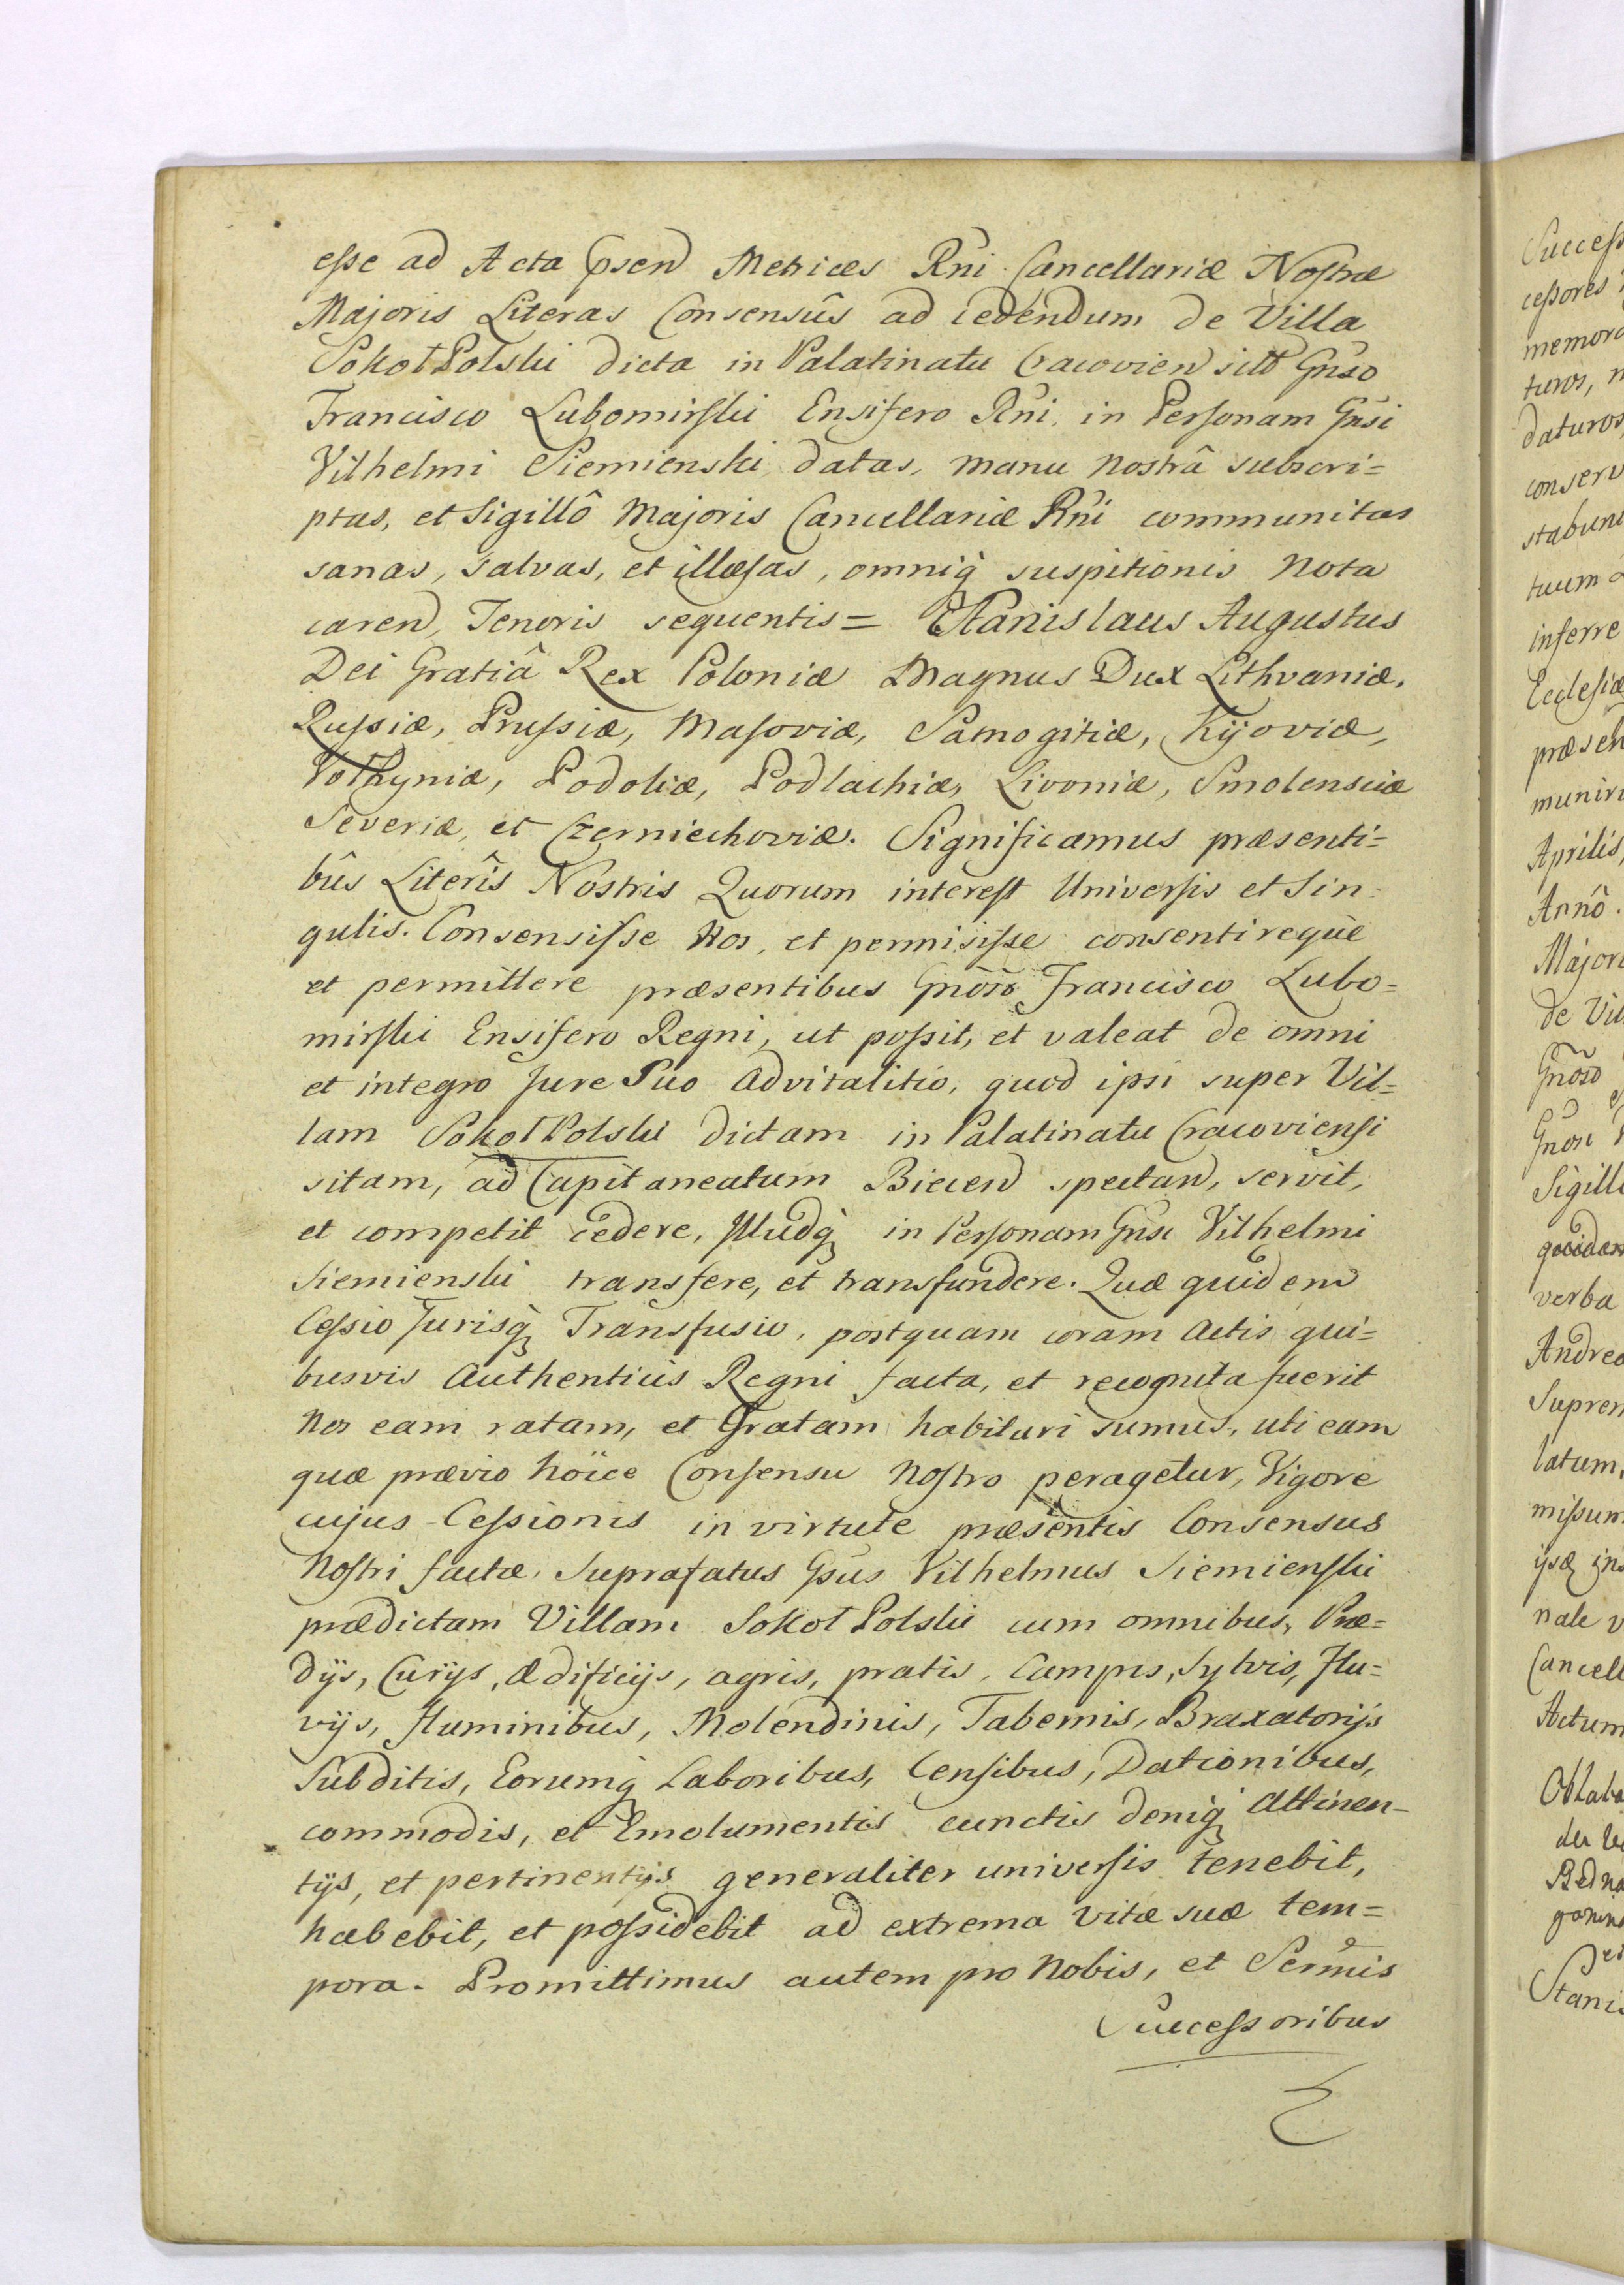 esse ad Acta psen Metrices Rni Cancellariæ Nostræ
Majoris Literas Consensûs ad cedendum de Villa
Sokoł Polski dicta in Palatinatu Cracovien sitâ Gnso
Francisco Lubomirski Ensifero Rni, in Personam Gnsi
Vilhelmi Siemienski datas, manu nostrâ subscri=
ptas, et Sigillô Majoris Cancellariæ Rni communitas
sanas, salvas, et illæsas, omniq suspitionis nota
caren, Tenoris sequentis= Stanislaus Augustus
Dei Gratiâ Rex Poloniæ Magnus Dux Lithvaniæ,
Russiæ, Prussiæ, Masoviæ, Samogitiæ, Kijoviæ,
Volhyniæ, Podoliæ, Podlachiæ, Livoniæ, Smolensciæ
Severiæ, et Czerniechoviæ. Significamus præsenti=
bûs Literîs Nostris Quorum interest Universis et Sin=
gulis. Consensisse Nos, et permisisse consentirequè
et permittere præsentibus Gnoso Francisco Lubo=
mirski Ensifero Regni, ut possit, et valeat de omni
et integro Jure Suo Advitalitio, quod ipsi super Vil=
lam Sokoł Polski dictam in Palatinatu Cracoviensi
sitam, ad Capitaneatum Biecen spectan, servit,
et competit cedere, Illudq in Personam Gnsi Vilhelmi
Siemienski transfere, et transfundere. Quæ quidem
Cessio Jurisq Transfusio, postquam coram Actis qui=
busvis Authenticis Regni facta, et recognita fuerit
Nos eam ratam, et Gratam habituri sumus, uti eam
quæ prævio hoĩce Consensu Nostro peragetur, Vigore
cujus Cessionis in virtute præsentis Consensus
Nostri factæ, Suprafatus Gsus Vilhelmus Siemienski
prædictam Villam Sokoł Polski cum omnibus, Præ=
dijs, Curijs, Ædificijs, agris, pratis, Campis, Sylvis, Flu=
vijs, fluminibus, Molendinis, Tabernis, Braxatorijs
Subditis, Eorumq Laboribus, Censibus, Dationibus,
commodis, et Emolumentis cunctis deniq Attinen=
tijs, et pertinentijs generaliter universis tenebit,
habebit, et possidebit ad extrema vitæ suæ tem=
pora. Promittimus autem pro Nobis, et Sermis
Successoribus
Success
cessores
memora
turos,
daturos
conserv
stabunt
tuum
inferre
Ecclesiæ
præsen
muniri
Aprilis,
Annô.
Majori
de Vil
Gnoso
Gnosi
Sigill
quidem
verba
Andrea
Suprem
latum,
missum
nale
Cancell
Actum
Oblata
Bedna
Stanis